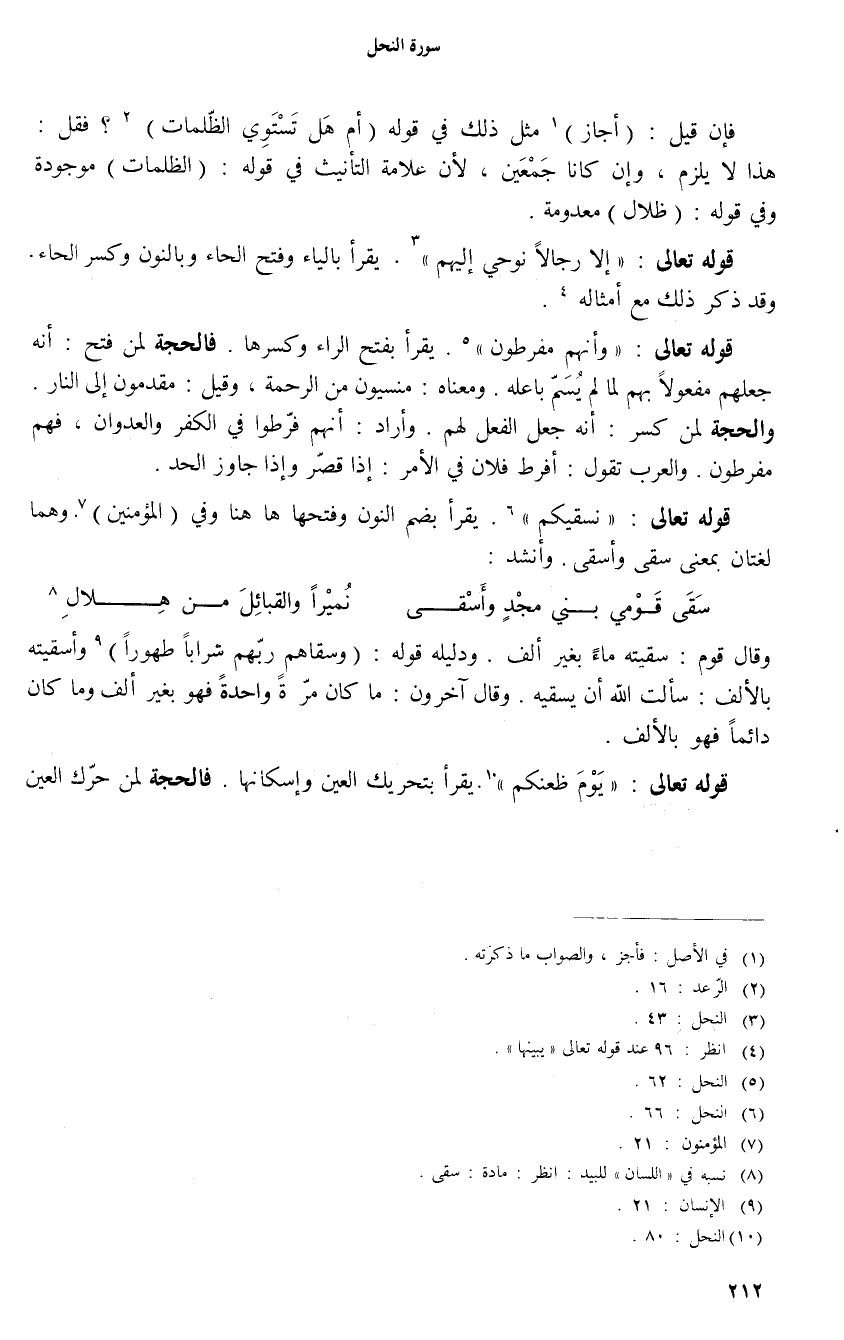 سورة النحل
فإن قيل : ( أجاز ) ١ مثل ذلك في قوله ( أم هَل تَسْتَوِي الظّلمات ) ٢ ؟ فقل :
هذا لا يلزم ، وإن كانا جَمْعَين ، لأن علامة التأنيث في قوله : ( الظلمات ) موجودة
وفي قوله : ( ظلال ) معدومة .
قوله تعالى : « إلا رجالاً نوحي إليهم » ٣ . يقرأ بالياء وفتح الحاء وبالنون وكسر الحاء .
وقد ذكر ذلك مع أمثاله ٤ .
قوله تعالى : « وأنهم مفرطون » ٥ . يقرأ بفتح الراء وكسرها . فالحجة لمن فتح : أنه
جعلهم مفعولاً بهم لما لم يُسَمّ باعله . ومعناه : منسيون من الرحمة ، وقيل : مقدمون إلى النار .
والحجة لمن كسر : أنه جعل الفعل لهم . وأراد : أنهم فرّطوا في الكفر والعدوان ، فهم
مفرطون . والعرب تقول : أفرط فلان في الأمر : إذا قصّر وإذا جاوز الحد .
قوله تعالى : « نسقيكم » ٦ . يقرأ بضم النون وفتحها ها هنا وفي ( المؤمنين ) ٧. وهما
لغتان بمعنى سقى وأسقى . وأنشد :
سَقَى قَوْمي بني مجْدٍ وأَسْقى نُميْراً والقبائِلَ من هِلالِ ٨
وقال قوم : سقيته ماءً بغير ألف . ودليله قوله : ( وسقاهم ربّهم شراباً طهوراً ) ٩ وأسقيته
بالألف : سألت الله أن يسقيه . وقال آخرون : ما كان مرّ ةً واحدةً فهو بغير ألف وما كان
دائماً فهو بالألف .
قوله تعالى : « يَوْمَ ظعنكم » ١٠. يقرأ بتحريك العين وإسكانها . فالحجة لمن حرّك العين
(١) في الأصل : فأجز ، والصواب ما ذكرَته .
(٢) الرّعد : ١٦ .
(٣) النحل : ٤٣ .
(٤) انظر : ٩٦ عند قوله تعالى « يبينها » .
(٥) النحل : ٦٢ .
(٦) النحل : ٦٦ .
(٧) المؤمنون : ٢١ .
(٨) نسبه في « اللسان » للبيد : انظر : مادة : سقى .
(٩) الإنسان : ٢١ .
(١٠) النحل : ٨٠ .
٢١٢